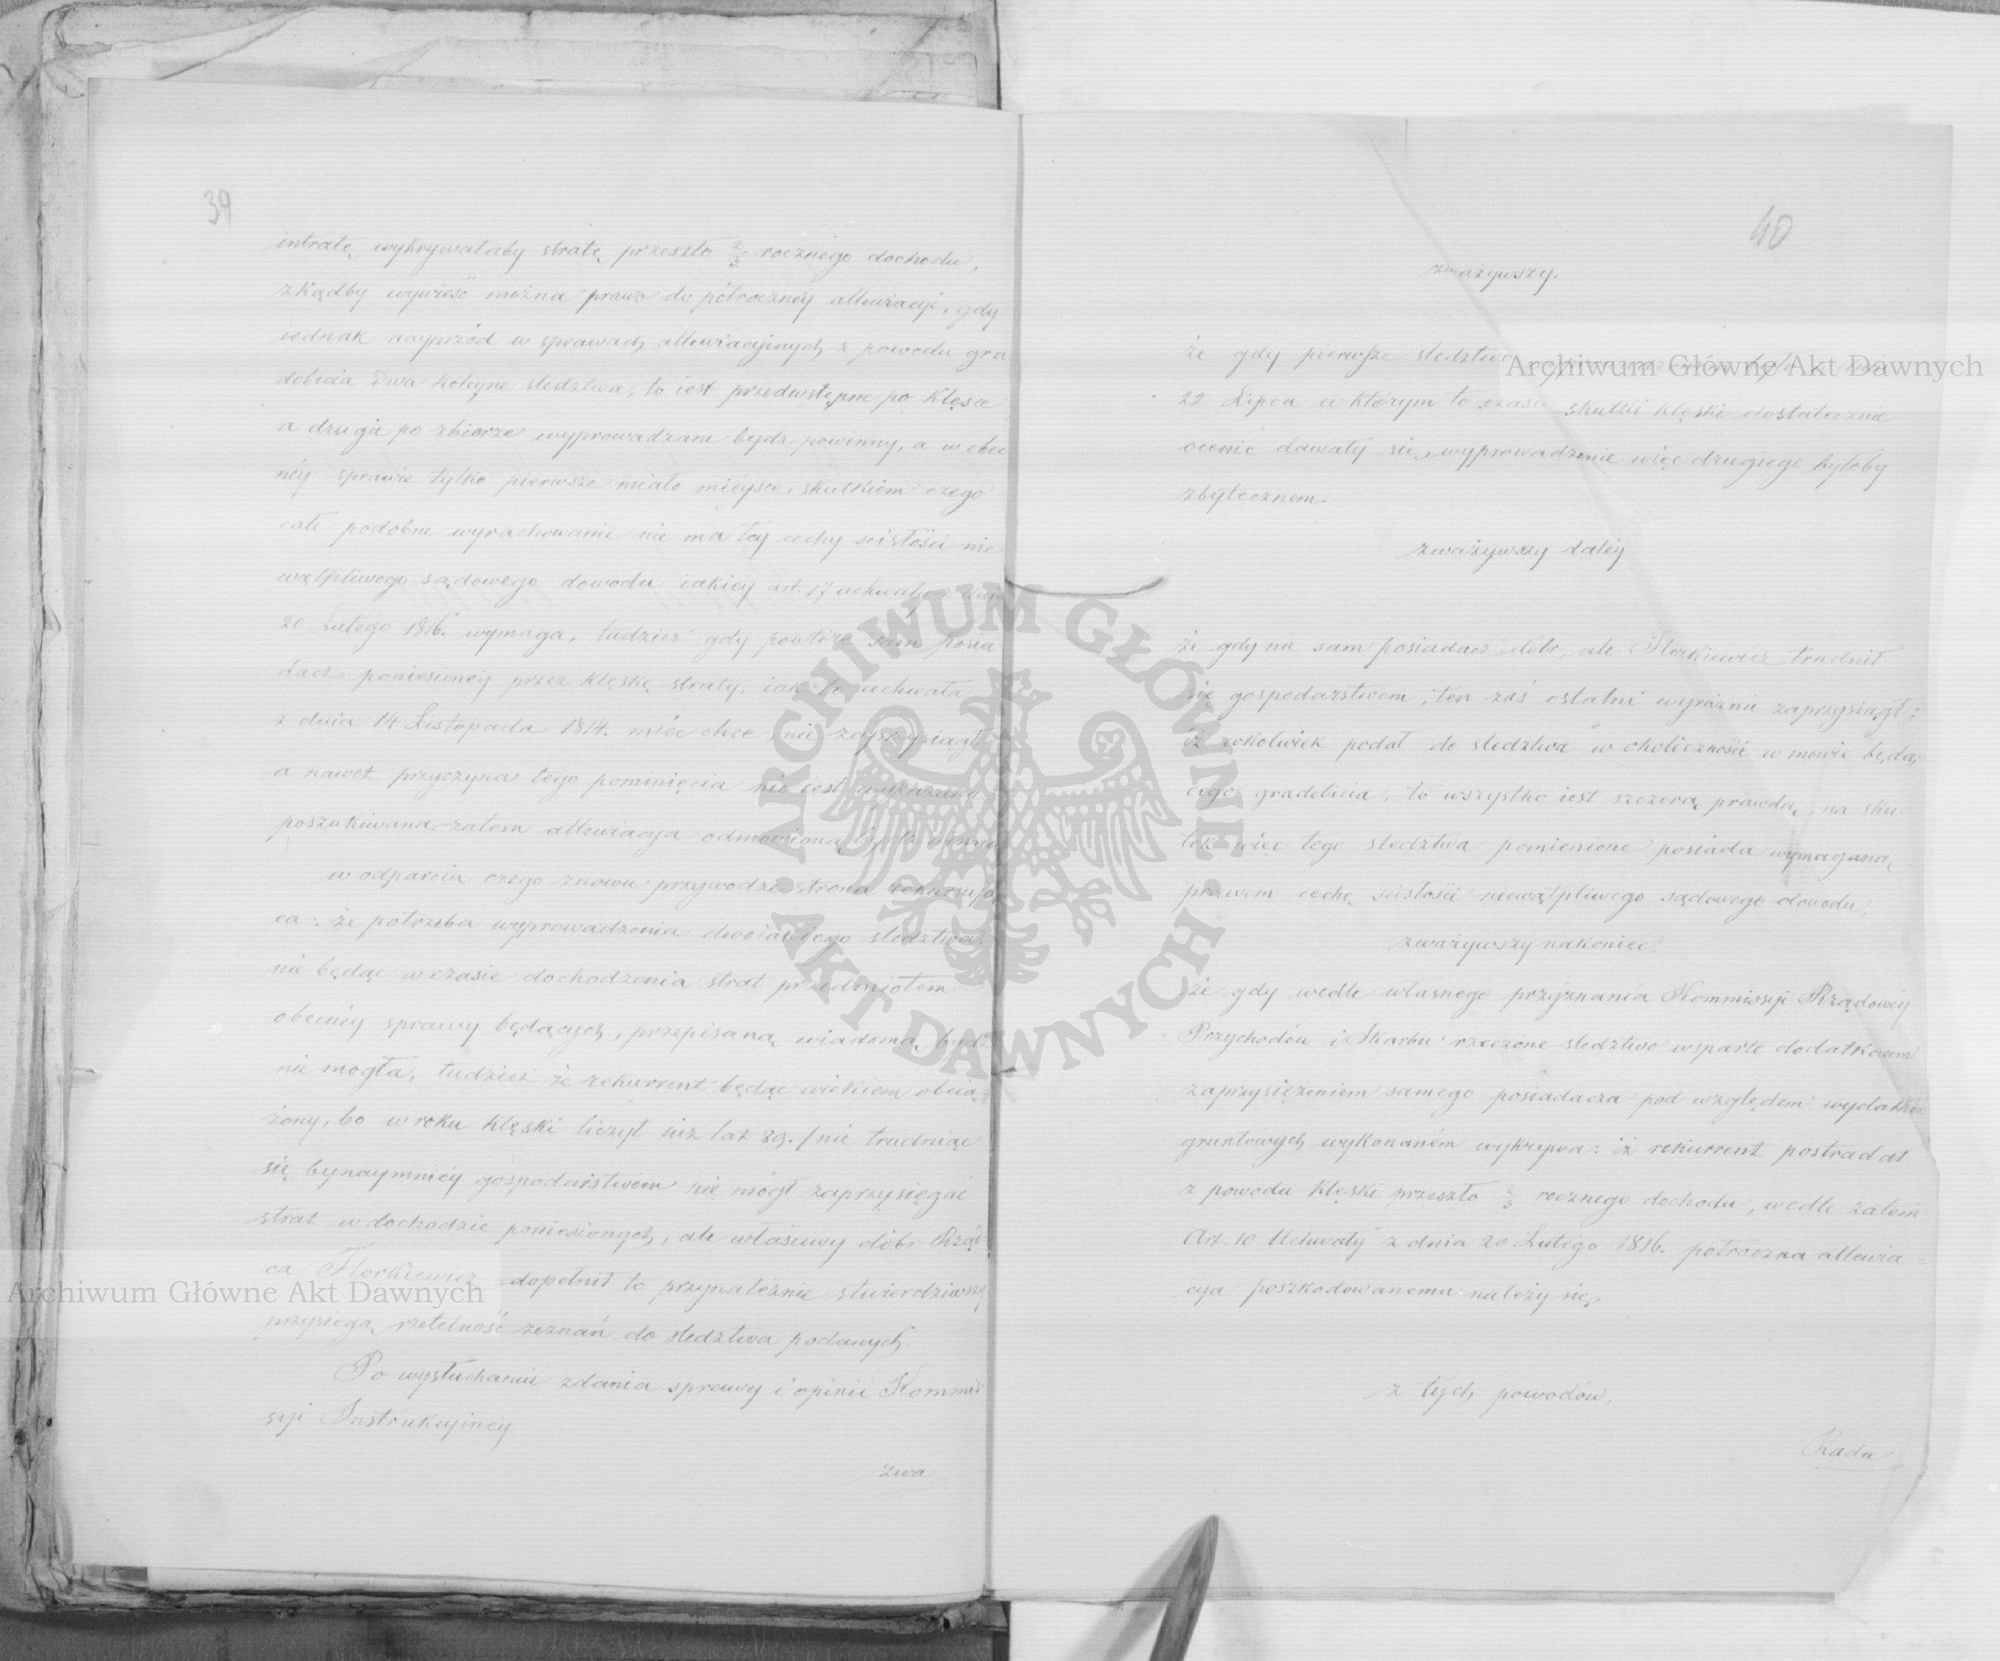 39
intratę wykrywałaby stratę przeszło 2/3 rocznego dochodu,
zkądby wywieść można prawo do półrocznéy allewiacyi, gdy
iednak nayprzód w sprawach allewiacyinych z powodu gra
dobicia dwa koleyne śledztwa, to iest przedwstępne po klęsce
a drugie po zbiorze wyprowadzane bydź powinny, a w obec
néy sprawie tylko pierwsze miało mieysce, skutkiem czego
całe podobne wyrachowanie nie ma téy cechy ścisłości nie
wątpliwego sądowego dowodu iakiéy art. 17 uchwały z dnia
20 Lutego 1816. wymaga, tudzież gdy powtóre sam posia
dacz poniesionéy przez klęskę straty, iak to uchwała
z dnia 14 Listopada 1814. mieć chce nie zaprzysiągł
a nawet przyczyna tego pominięcia nie iest wykazana
poszukiwana zatem allewiacya odmówioną bydź winna
w odparciu czego znowu przywodzi strona rekurruią
ca: że potrzeba wyprowadzenia dwoiakiego śledztwa,
nie będąc w czasie dochodzenia strat przedmiotem
obecnéy sprawy będących, przepisaną, wiadomą bydź
nie mogła, tudzież że rekurrent będąc wiekiem obcią
żony, bo w roku klęski liczył iuż lat 89. /nie trudniąc
się bynaymniéy gospodarstwem nie mógł zaprzysięgać
strat w dochodzie poniesionych, ale właściwy dóbr Rząd
ca Florkiewicz dopełnił to przynależnie stwierdziwszy
przysięgą rzetelność zeznań do śledztwa podanych.
Po wysłuchaniu zdania sprawy i opinii Kommis
syi Instrukcyinéy
zwa
40
zważywszy.
że gdy pierwsze śledztwo
22 Lipca w którym to czasie skutki klęski dostatecznie
ocenić dawały się, wyprowadzenie więc drugiego byłoby
zbytecznem.
zważywszy daléy
że gdy nie sam posiadacz dóbr, ale Florkiewicz trudnił
się gospodarstwem, ten zaś ostatni wyraźnie zaprzysiągł:
iż cokolwiek podał do śledztwa w okoliczności w mowie będą
cego gradobicia, to wszystko iest szczerą prawdą, na sku
tek więc tego śledztwa pomienione posiada wymaganą
prawem cechę ścisłości niewątpliwego sądowego dowodu,
zważywszy nakoniec.
że gdy wedle własnego przyznania Kommissyi Rządowéy
Przychodów i Skarbu rzeczone śledztwo wsparte dodatkowem
zaprzysiężeniem samego posiadacza pod względem wydatków
gruntowych wykonaném wykrywa: iż rekurrent postradał
z powodu klęski przeszło 2/3 rocznego dochodu, wedle zatem
Art. 10 Uchwały z dnia 20 Lutego 1816. półroczna allewia
cya poszkodowanemu należy się.
z tych powodów.
Rada
Archiwum Główne Akt Dawnych
Archiwum Główne Akt Dawnych
ARCHIWUM GŁÓWNE · AKT DAWNYCH ·